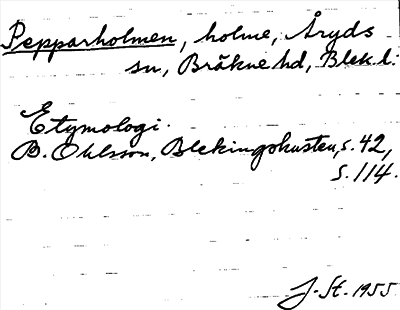 Pepparholmen, holme, Åryds
sn, Bräkne hd, Blek.l.
Etymologi.
B. Ohlsson, Blekingskusten, s. 42,
s. 114.
J. St. 1955